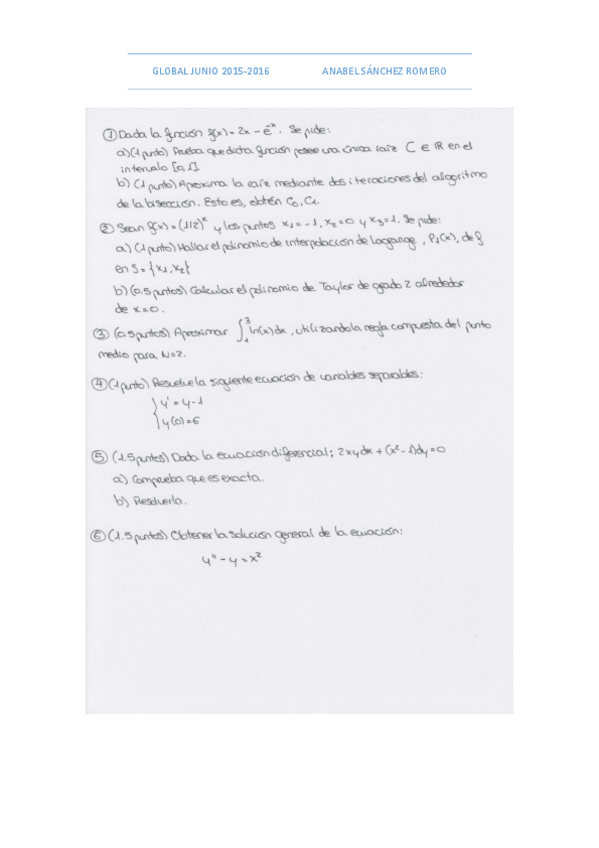 GLOBAL JUNIO 2015-2016 ANABEL SÁNCHEZ ROMERO
① Dada la función f(x) = 2x - e^-x. Se pide:
a) (1 punto) Prueba que dicha función posee una única raíz C ∈ ℝ en el
intervalo [0,1].
b) (1 punto) Aproxima la raíz mediante dos iteraciones del algoritmo
de la bisección. Esto es, obtén C₀, C₁.
② Sean f(x) = (1/2)^x y los puntos x₁ = -1, x₂ = 0 y x₃ = 1. Se pide:
a) (1 punto) Hallar el polinomio de interpolación de Lagrange, P₁(x), de f
en S = {x₁, x₂}
b) (0.5 puntos) Calcular el polinomio de Taylor de grado 2 alrededor
de x = 0.
③ (0.5 puntos) Aproximar ∫₁³ ln(x) dx, utilizando la regla compuesta del punto
medio para N=2.
④ (1 punto) Resuelve la siguiente ecuación de variables separables:
{ y' = y - 1
y(0) = 6
⑤ (1.5 puntos) Dada la ecuación diferencial; 2xy dx + (x² - 1) dy = 0
a) Comprueba que es exacta.
b) Resuerla.
⑥ (1.5 puntos) Obtener la solución general de la ecuación:
y'' - y = x²